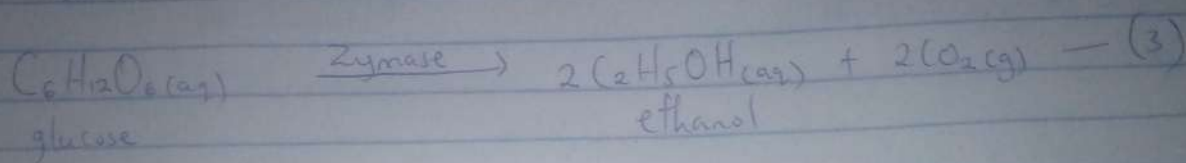 C₆H₁₂O₆(aq) Zymase → 2C₂H₅OH(aq) + 2CO₂(g) — (3)
glucose ethanol